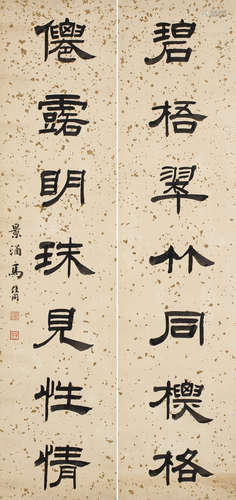 碧梧翠竹同樸格
僊露明珠見性情
景涵馬